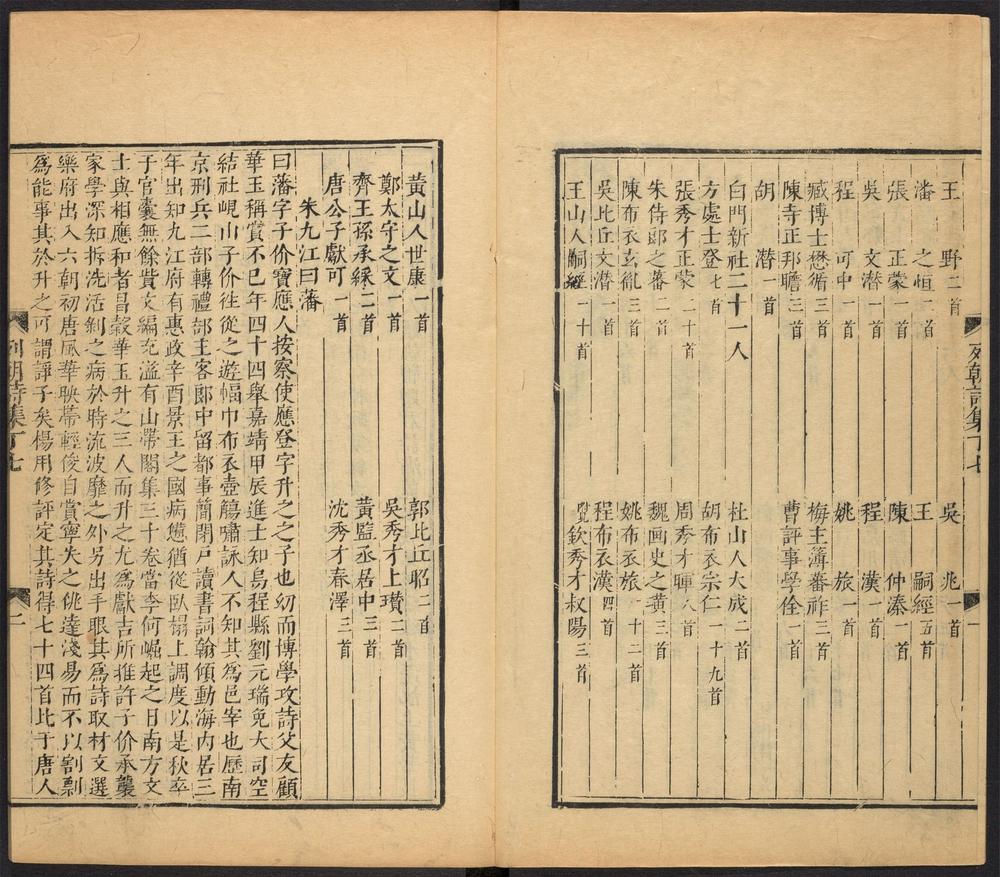 列朝詩集丁七
一
王野二首
吳兆一首
潘之恒一首
王嗣經五首
張正蒙一首
陳仲溱一首
吳文潛一首
程漢一首
程可中一首
姚旅一首
臧博士懋循三首
梅主簿蕃祚三首
陳寺正邦瞻三首
曹評事學佺一首
胡潛一首
白門新社二十一人
方處士登七首
杜山人大成二首
張秀才正蒙二十首
胡布衣宗仁一十九首
朱侍郎之蕃二首
周秀才暉八首
陳布衣玄胤三首
魏画史之璜三首
吳比丘文潛一首
姚布衣旅一十二首
王山人嗣經一十首
程布衣漢四首
覽欽秀才叔陽三首
黃山人世康一首
郭比丘昭二首
鄭太守之文一首
吳秀才上瓚二首
齊王孫承綵二首
黃監丞居中三首
唐公子獻可一首
沈秀才春澤三首
朱九江曰藩
曰藩字子价寶應人按察使應登字升之之子也幼而博學攻詩父友顧
華玉稱賞不已年四十四舉嘉靖甲辰進士知烏程縣劉元瑞免大司空
結社峴山子价徃從之遊幅巾布衣壺觴嘯詠人不知其為邑宰也歷南
京刑兵二部轉禮部主客郎中留都事簡閉戶讀書詞翰傾動海內居三
年出知九江府有惠政辛酉景王之國病憊猶從臥榻上調度以是秋卒
于官囊無餘貲文編充溢有山帶閣集三十卷當李何崛起之日南方文
士與相應和者昌穀華玉升之三人而升之尤為獻吉所推許子价承襲
家學深知拆洗活剝之病於時流波靡之外另出手眼其為詩取材文選
樂府出入六朝初唐風華映帶輕俊自賞寧失之佻達淺易而不以割剽
為能事其於升之可謂諍子矣楊用修評定其詩得七十四首比于唐人
列朝詩集丁七
二